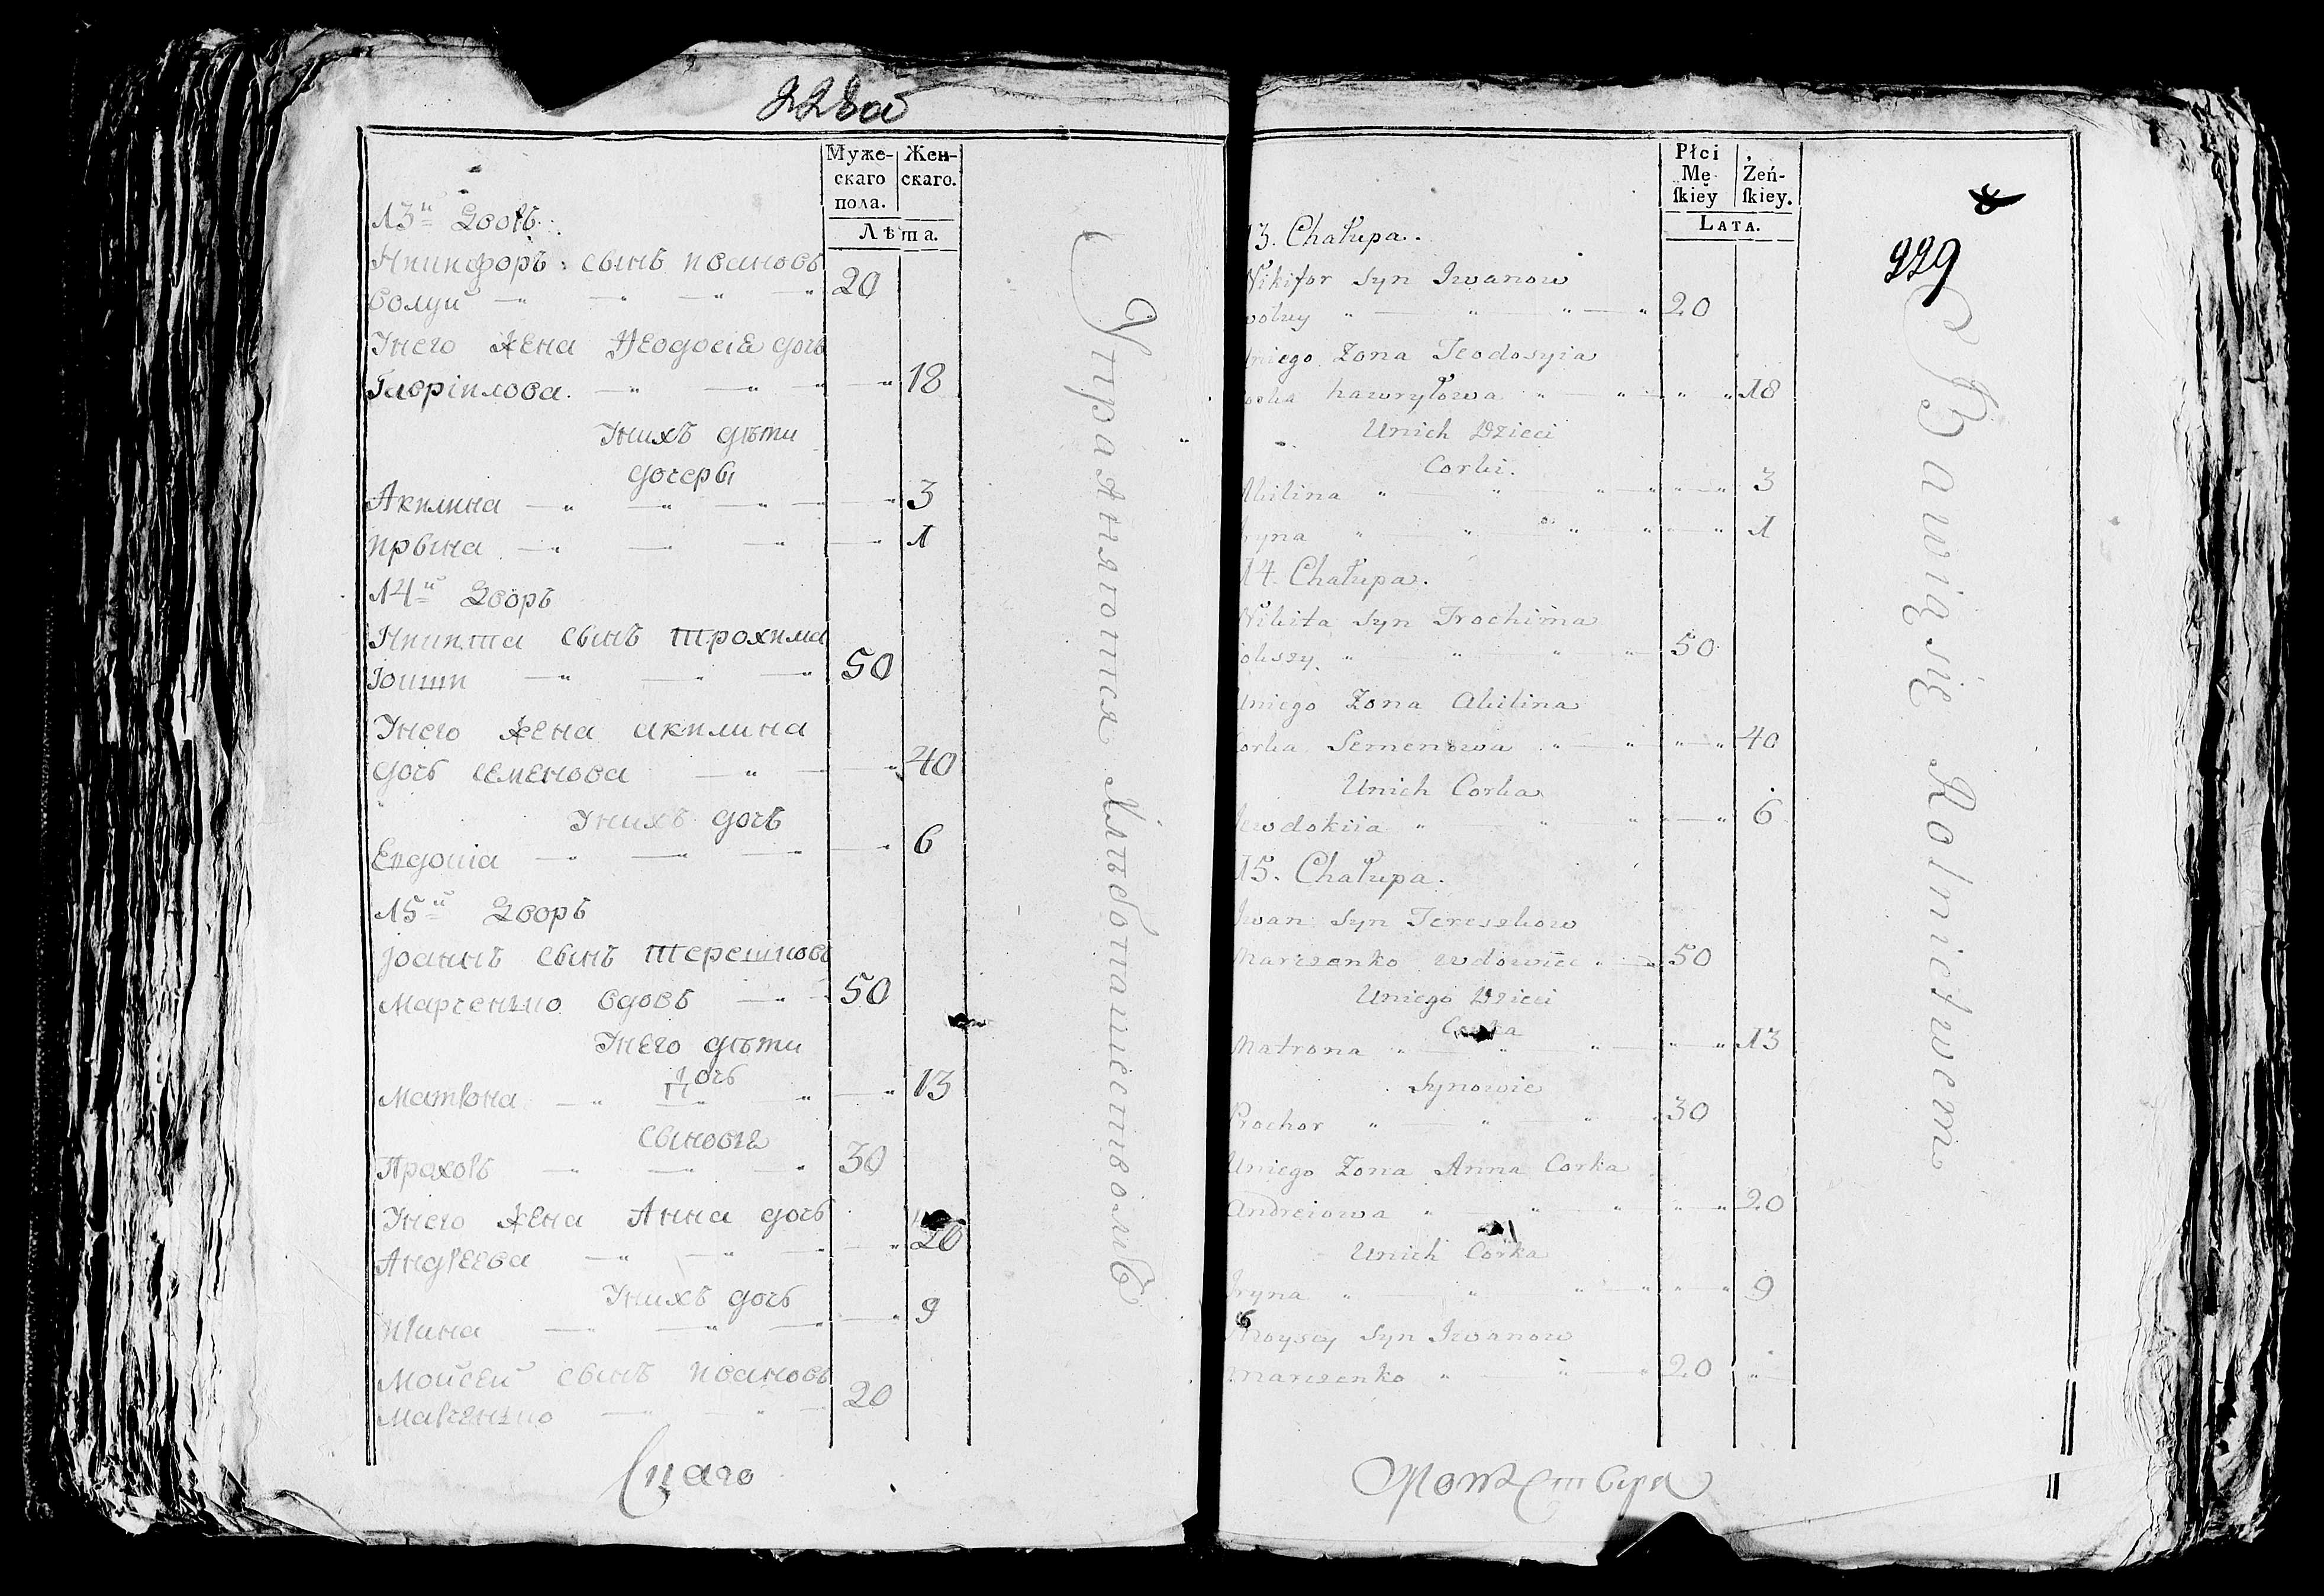 228
Муже-
скаго
пола.
Жен-
скаго.
Лѣта.
13й Дворъ.
Никифоръ сынъ ивановъ
20
Унего жена Ѳеодосія дочь
Гавріилова. 18
Унихъ дѣти
дочери
Акилина 3
ирына 1
14й Дворъ
Никита сынъ трохима
50
Унего жена акилина
дочь семенова 40
Унихъ дочь
Евдокіа 6
15й Дворъ
Іоаннъ сынъ терешковъ
Марченко вдовъ 50
Унего дѣти
дочь
Матрона 13
сыновья
Прахоръ 30
Унего жена Анна дочь
Андреева 20
Унихъ дочь
ирина 9
Моисей сынъ ивановъ
Марченко 20
Упражняются Хлѣбопашествомъ
Płci
Mę-
ſkiey
Żeń-
ſkiey.
LATA.
229
13. Chałupa.
Nikifor Syn Iwanow
20
Uniego Zona Teodosyia
hawryłowa 18
Unich Dzieci
Corki.
Akilina 3
Iryna 1
14. Chałupa.
Nikita Syn Trochima
50
Uniego Zona Akilina
Corka Semenowa 40
Unich Corka
Jewdokiia 6
15. Chałupa.
Iwan Syn Tereszkow
Marczenko wdowiec 50
Uniego Dzieci
Corka
Matrona 13
Synowie
Prochor 30
Uniego Zona Anna Corka
Andreiowa 20
Unich Corka
Iryna 9
Moysey Syn Iwanow
Marczenko 20
Bawią się Rolnictwem